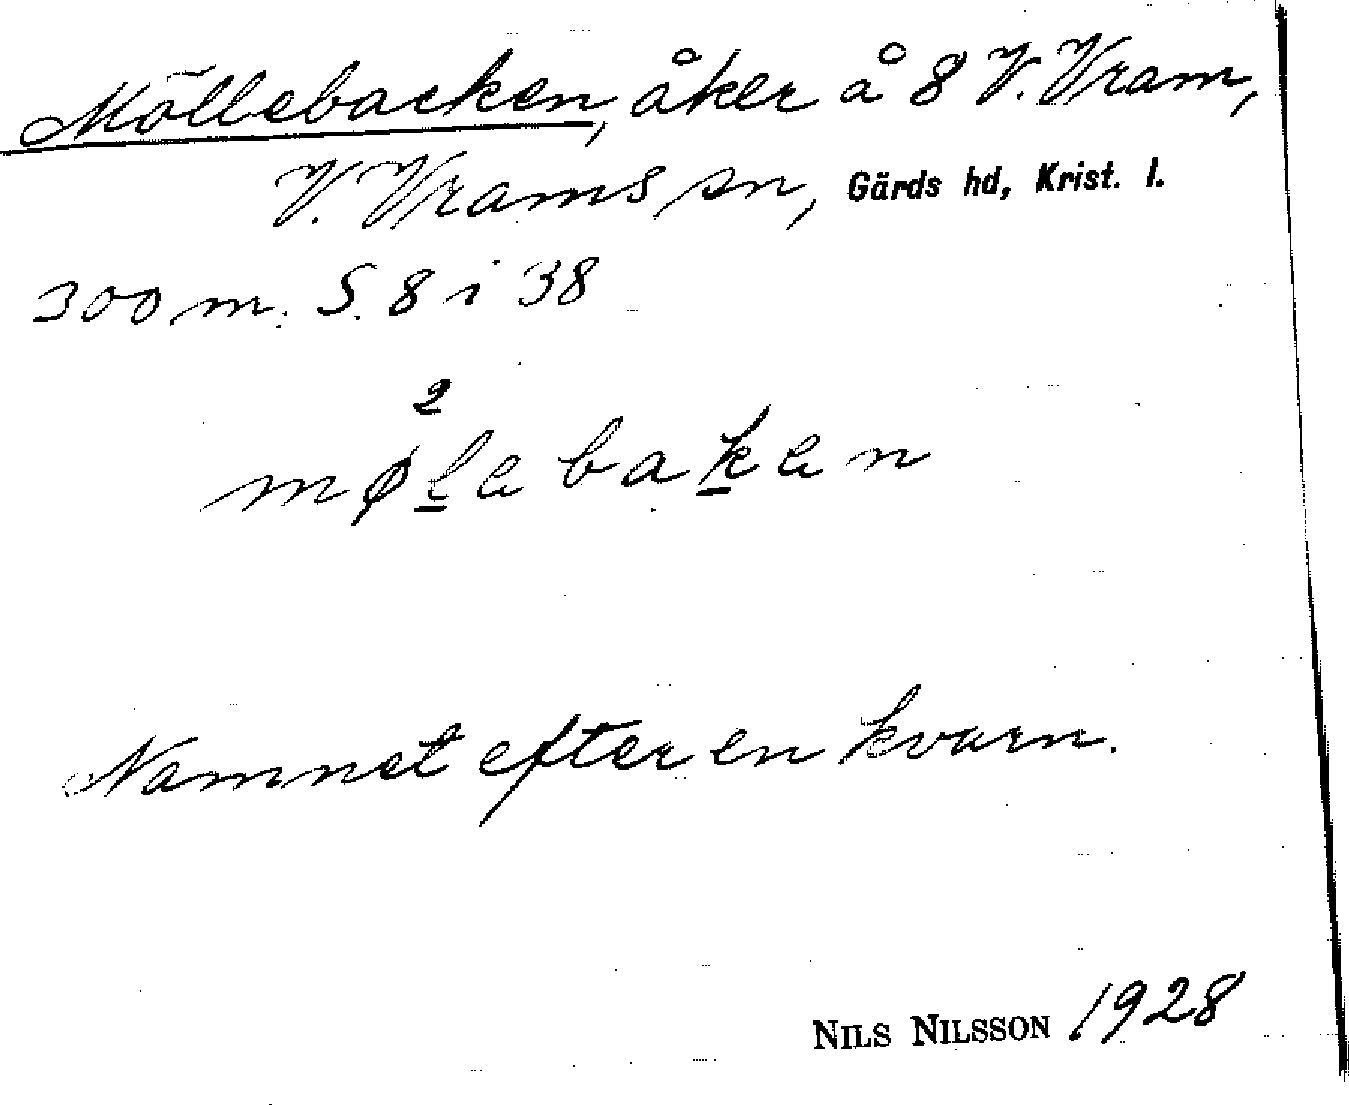 Möllebacken, åker å 8 V. Vram,
V. Vrams sn, Gärds hd, Krist. l.
300 m. S. 8 i 38
2
møl̲ebak̲en
Namnet efter en kvarn.
NILS NILSSON 1928